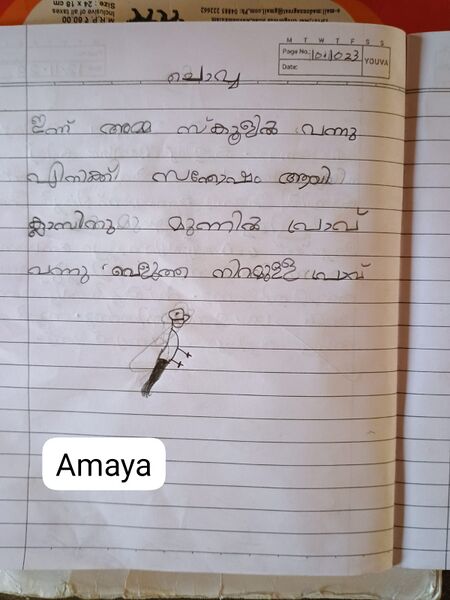 Inclusive of all taxes
M.R.P ₹ 60.00
Size : 24 x 18 cm
M T W T F S S
Page No.: 10/10/23
Date:
YOUVA
ചൊവ്വ
ഇന്ന് അമ്മ സ്കൂളിൽ വന്നു
എനിക്ക് സന്തോഷം ആയി
ക്ലാസിനു മുന്നിൽ പ്രാവ്
വന്നു വെളുത്ത നിറമുള്ള പ്രാവ്
Amaya